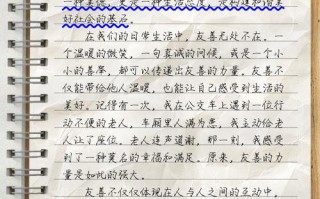 一种美德，更是一种生活态度，是构建和谐美
好社会的基石。
在我们的日常生活中，友善无处不在。一
个温暖的微笑，一句真诚的问候，或是一个小
小的善举，都可以传递出友善的力量。友善不
仅能带给他人温暖，也能让自己感受到生活的
美好。记得有一次，我在公交车上遇到一位行
动不便的老人，车厢里人满为患，我主动给老
人让了座位。老人连声道谢，那一刻，我感受
到了一种莫名的幸福和满足。原来，友善的力
量是如此的强大。
友善不仅仅体现在人与人之间的互动中，